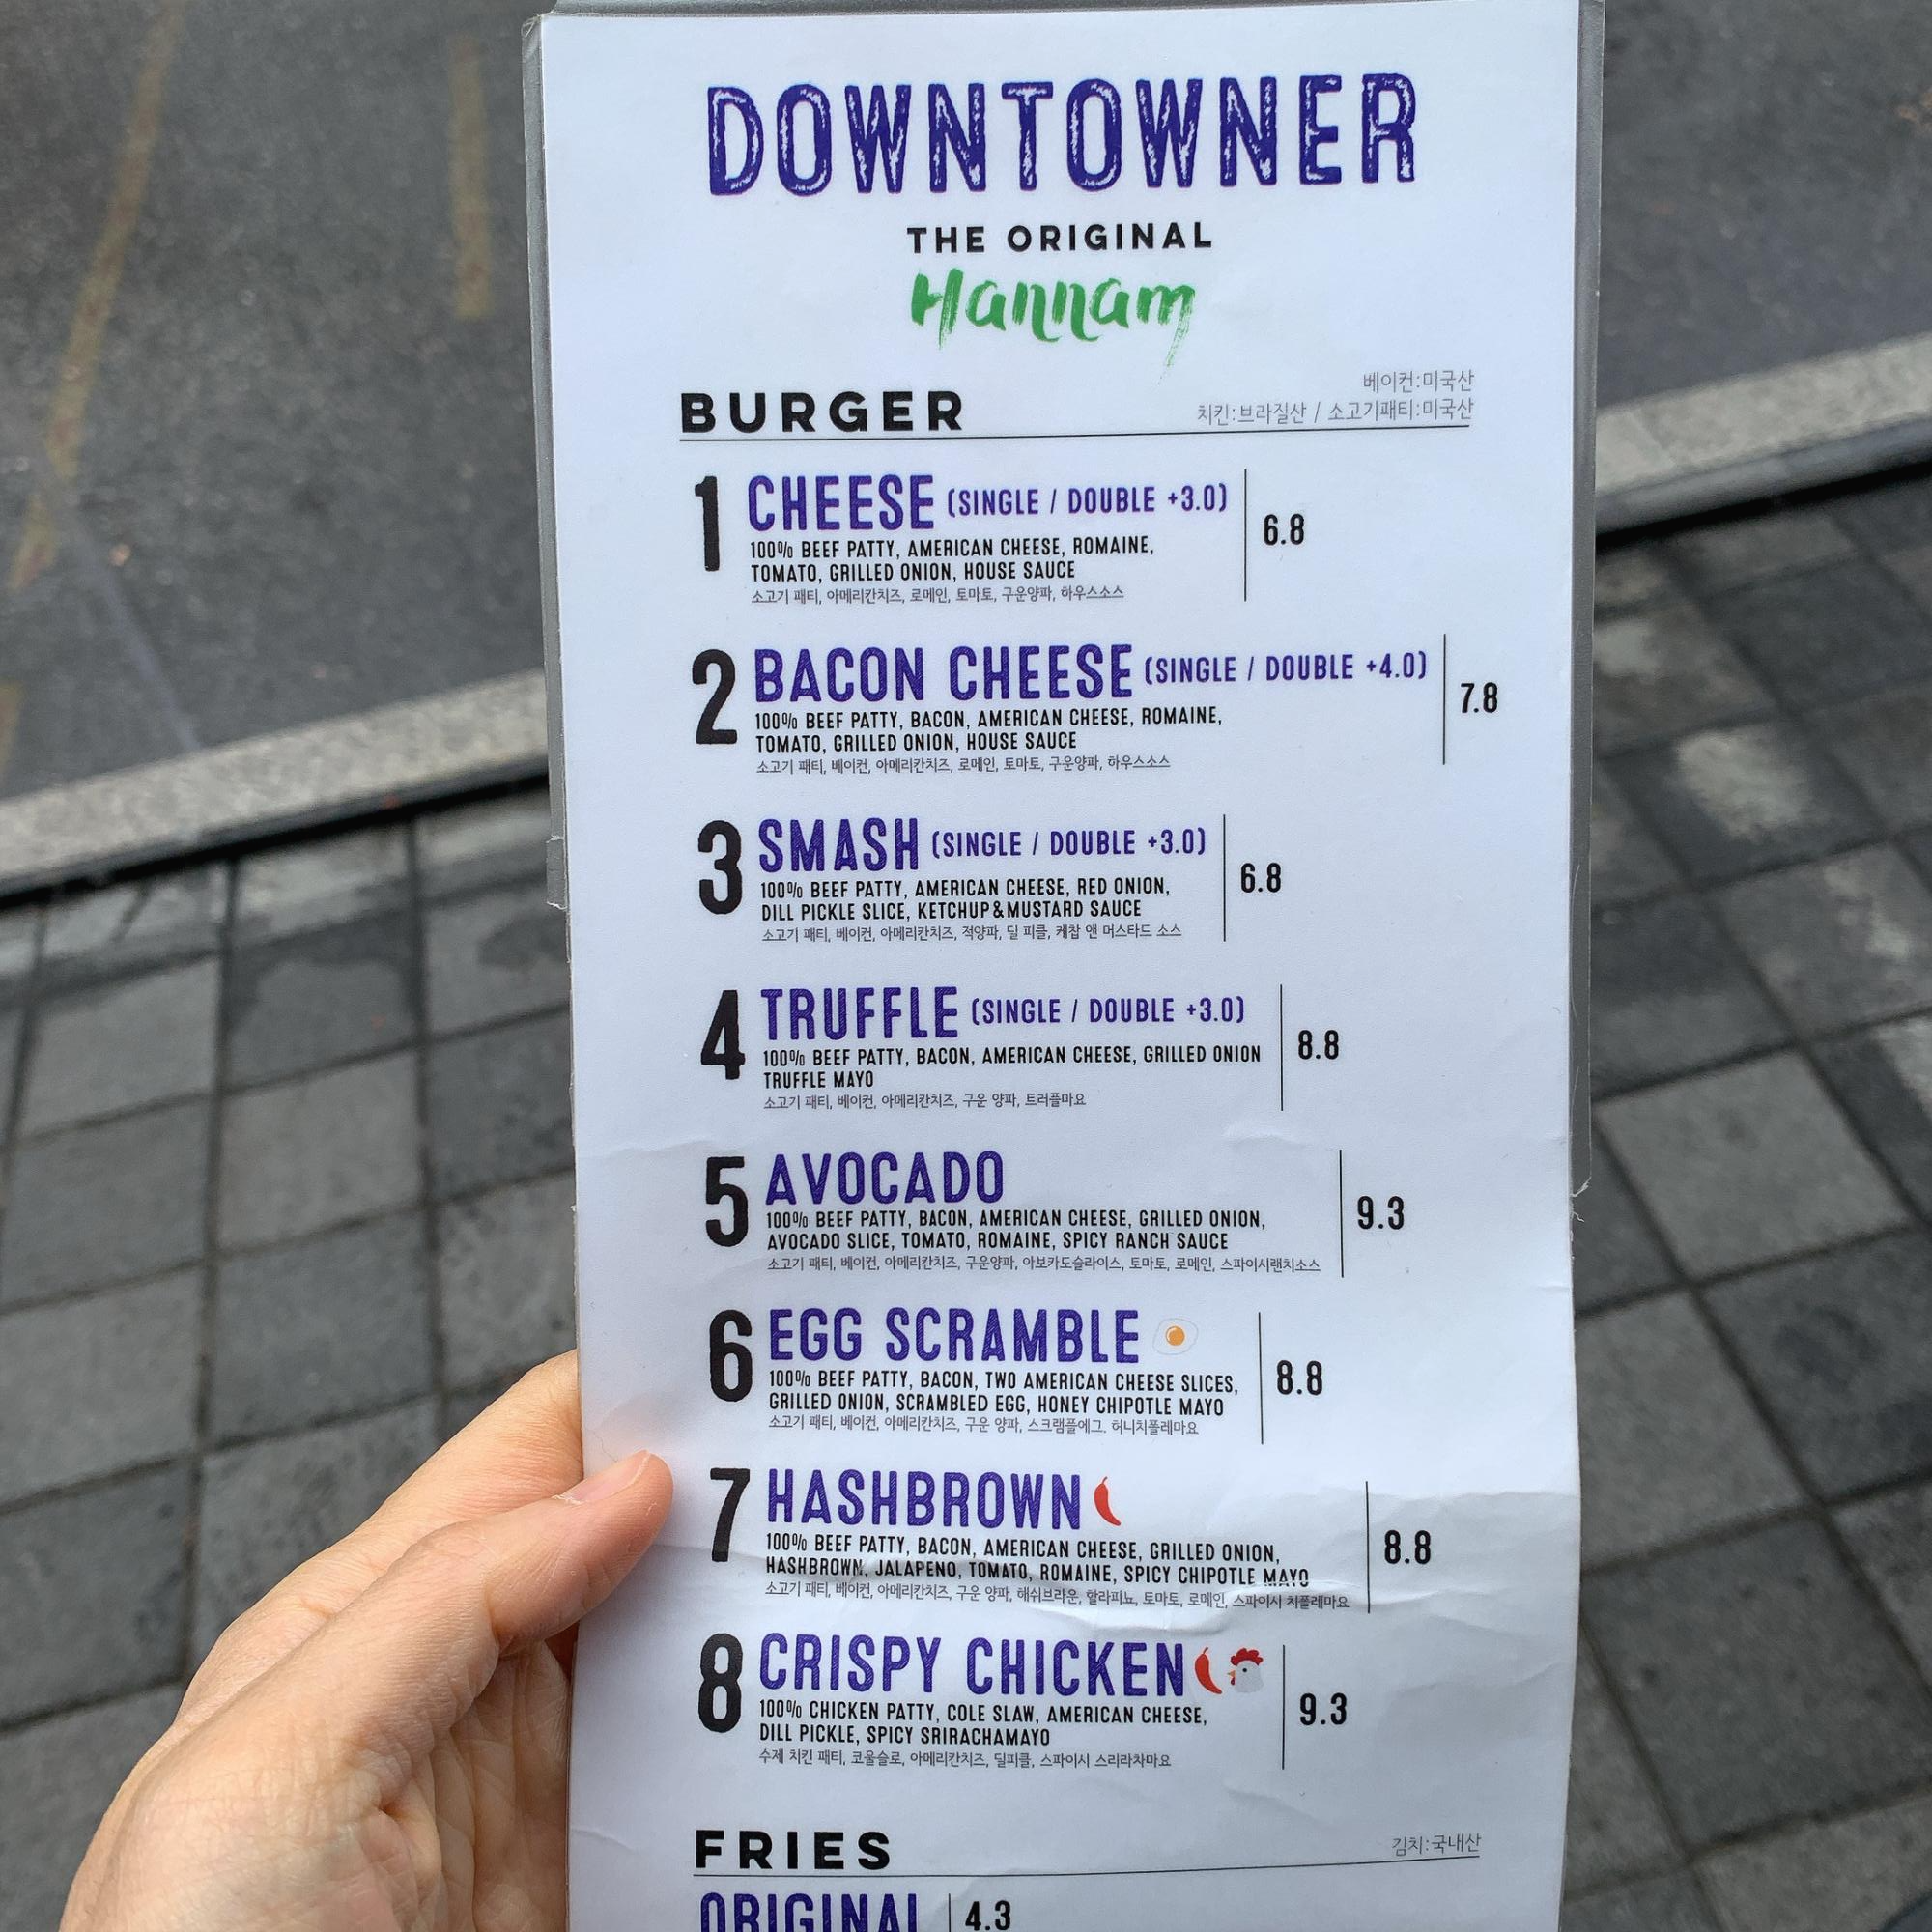 DOWNTOWNER
THE ORIGINAL
Hannam
베이컨:미국산
BURGER 치킨:브라질산 / 소고기패티:미국산
1 CHEESE (SINGLE / DOUBLE +3.0) 6.8
100% BEEF PATTY, AMERICAN CHEESE, ROMAINE,
TOMATO, GRILLED ONION, HOUSE SAUCE
소고기 패티, 아메리칸치즈, 로메인, 토마토, 구운양파, 하우스소스
2 BACON CHEESE (SINGLE / DOUBLE +4.0) 7.8
100% BEEF PATTY, BACON, AMERICAN CHEESE, ROMAINE,
TOMATO, GRILLED ONION, HOUSE SAUCE
소고기 패티, 베이컨, 아메리칸치즈, 로메인, 토마토, 구운양파, 하우스소스
3 SMASH (SINGLE / DOUBLE +3.0) 6.8
100% BEEF PATTY, AMERICAN CHEESE, RED ONION,
DILL PICKLE SLICE, KETCHUP&MUSTARD SAUCE
소고기 패티, 베이컨, 아메리칸치즈, 적양파, 딜 피클, 케찹 앤 머스타드 소스
4 TRUFFLE (SINGLE / DOUBLE +3.0) 8.8
100% BEEF PATTY, BACON, AMERICAN CHEESE, GRILLED ONION
TRUFFLE MAYO
소고기 패티, 베이컨, 아메리칸치즈, 구운 양파, 트러플마요
5 AVOCADO 9.3
100% BEEF PATTY, BACON, AMERICAN CHEESE, GRILLED ONION,
AVOCADO SLICE, TOMATO, ROMAINE, SPICY RANCH SAUCE
소고기 패티, 베이컨, 아메리칸치즈, 구운양파, 아보카도슬라이스, 토마토, 로메인, 스파이시랜치소스
6 EGG SCRAMBLE 8.8
100% BEEF PATTY, BACON, TWO AMERICAN CHEESE SLICES,
GRILLED ONION, SCRAMBLED EGG, HONEY CHIPOTLE MAYO
소고기 패티, 베이컨, 아메리칸치즈, 구운 양파, 스크램블에그. 허니치폴레마요
7 HASHBROWN 8.8
100% BEEF PATTY, BACON, AMERICAN CHEESE, GRILLED ONION,
HASHBROWN, JALAPENO, TOMATO, ROMAINE, SPICY CHIPOTLE MAYO
소고기 패티, 베이컨, 아메리칸치즈, 구운 양파, 해쉬브라운, 할라피뇨, 토마토, 로메인, 스파이시 치폴레마요
8 CRISPY CHICKEN 9.3
100% CHICKEN PATTY, COLE SLAW, AMERICAN CHEESE,
DILL PICKLE, SPICY SRIRACHAMAYO
수제 치킨 패티, 코울슬로, 아메리칸치즈, 딜피클, 스파이시 스리라차마요
FRIES 김치:국내산
ORIGINAL 4.3